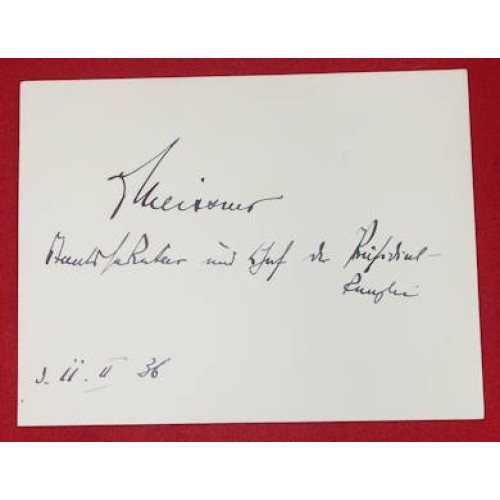 Meissner
Staatssekretär und Chef der Präsidial-
Kanzlei
d. 11. II 36